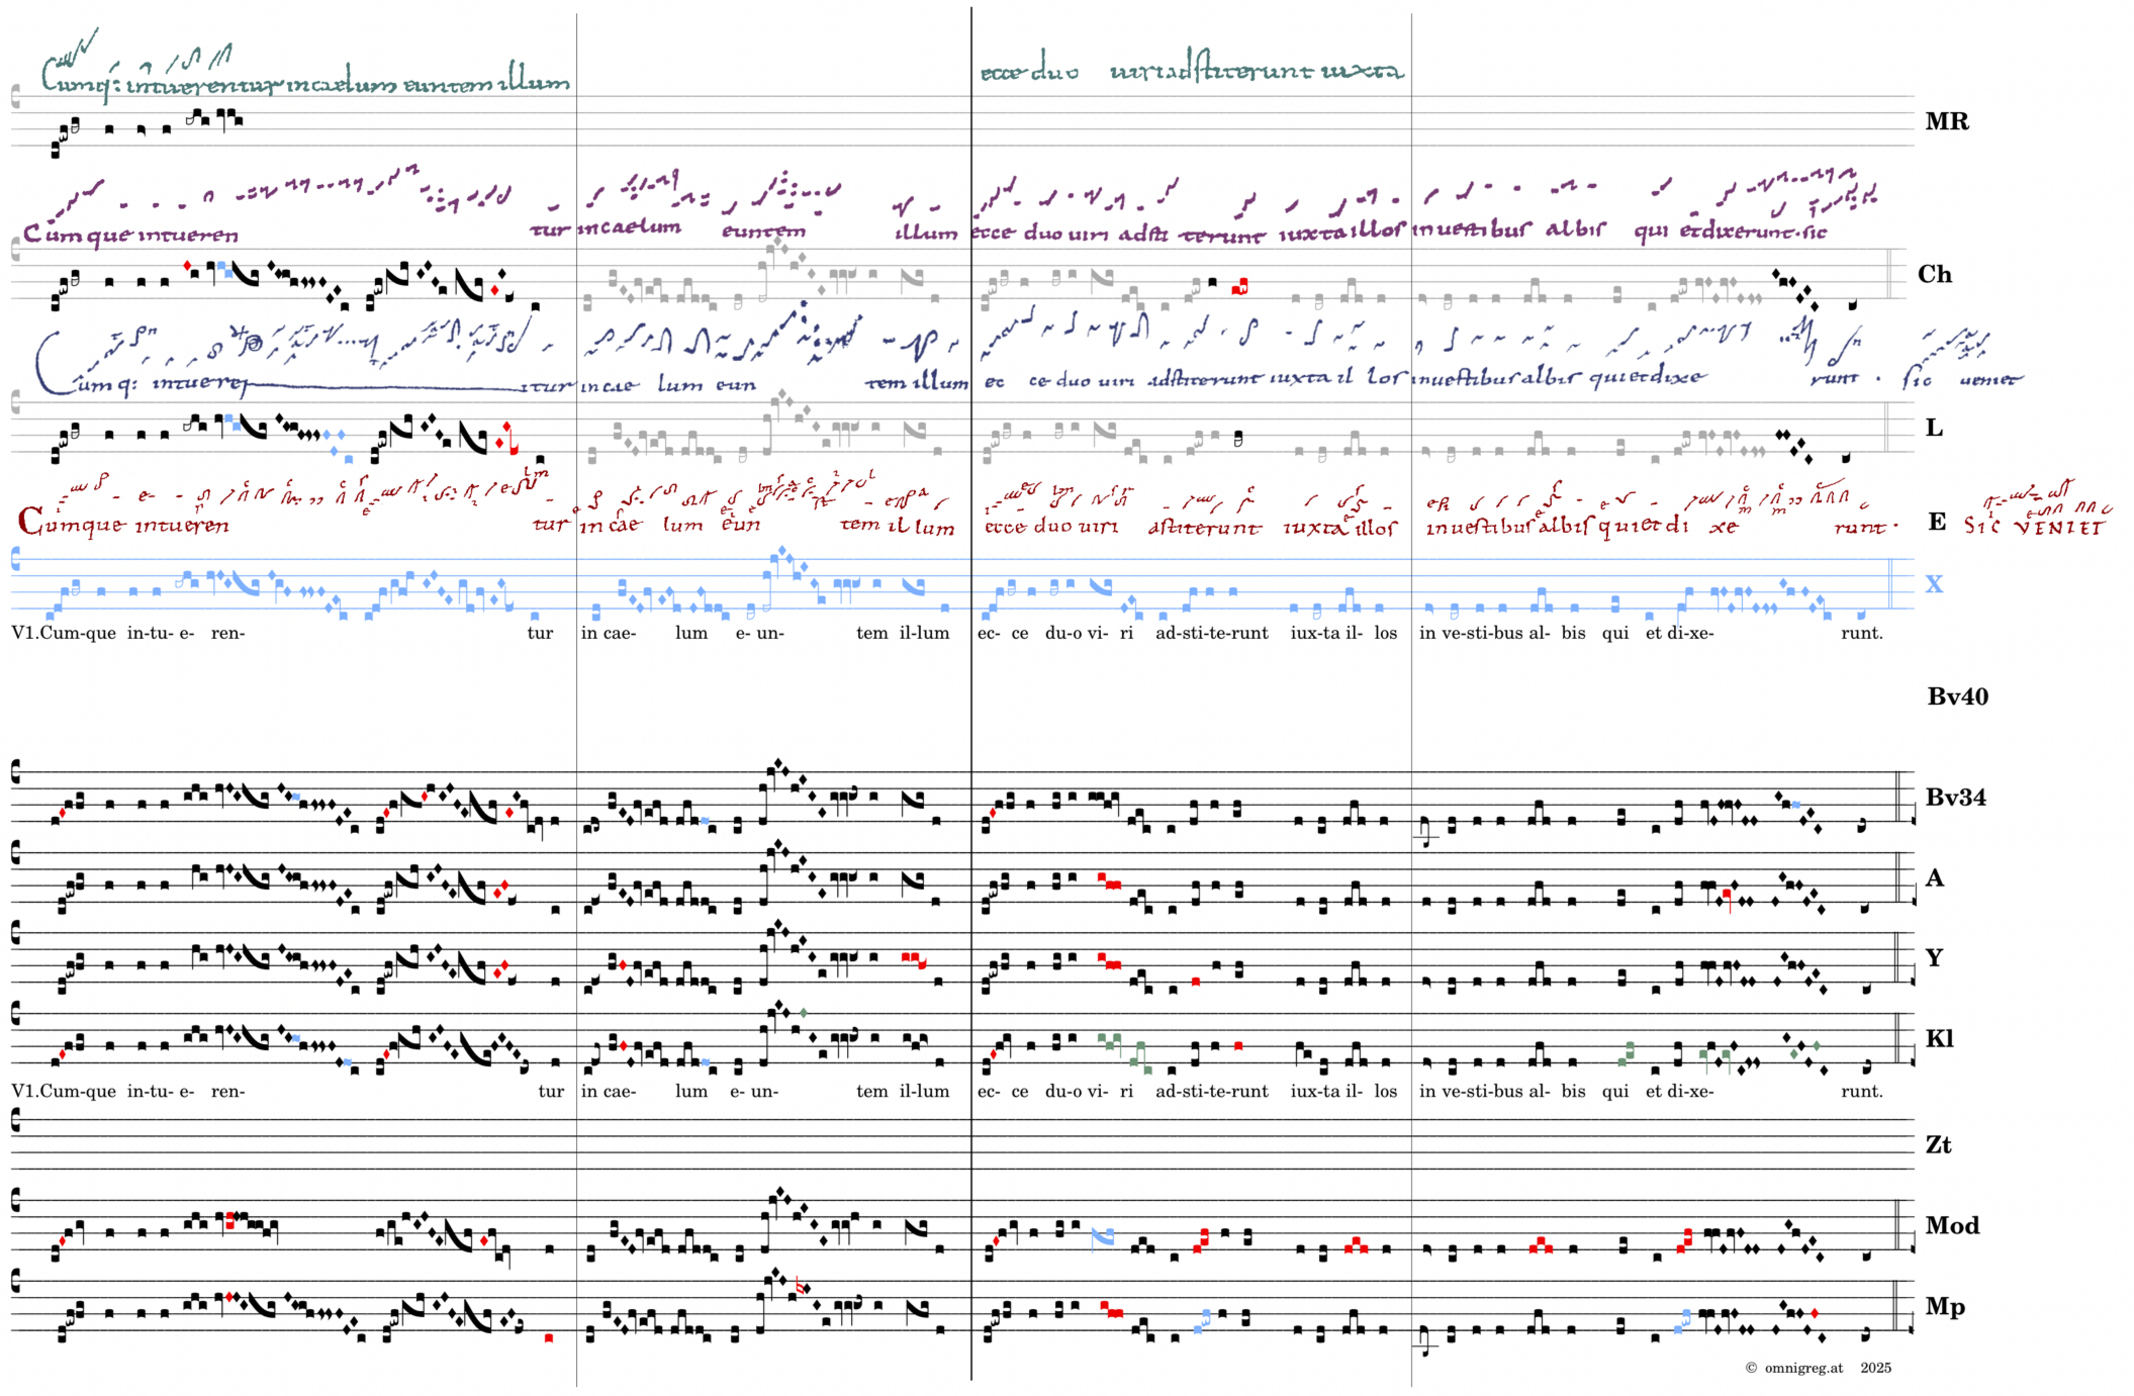 Cumq: intuerentur in caelum euntem illum ecce duo uiri adstiterunt iuxta
MR
Cumque intueren tur in caelum euntem illum ecce duo uiri adsti terunt iuxta illos in uestibus albis qui et dixerunt. sic
Ch
Cumq: intueren tur in cae lum eun tem illum ec ce duo uiri adstiterunt iuxta il los in uestibus albis qui et dixe runt. sic ueniet
L
Cumque intueren tur in cae lum eun tem il lum ecce duo uiri astiterunt iuxta illos in uestibus albis qui et di xe runt. SIC VENIET
E
X
V1.Cum-que in-tu- e- ren- tur in cae- lum e- un- tem il-lum ec- ce du-o vi- ri ad-sti-te-runt iux-ta il- los in ve-sti-bus al- bis qui et di-xe- runt.
Bv40
Bv34
A
Y
Kl
V1.Cum-que in-tu- e- ren- tur in cae- lum e- un- tem il-lum ec- ce du-o vi- ri ad-sti-te-runt iux-ta il- los in ve-sti-bus al- bis qui et di-xe- runt.
Zt
Mod
Mp
© omnigreg.at 2025